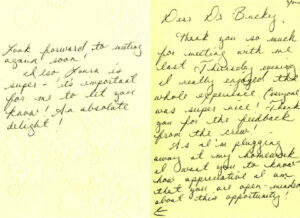 Dear Dr Buckey,
Thank you so much
for meeting with me
last Thursday evening
I really enjoyed the
whole experience. Everyone
was super nice! Thank
you for the feedback
from the crew!
As I'm plugging
away at my homework
I want you to know
how appreciative I am
that you are open-minded
about this opportunity!
Look forward to meeting
again soon!
Also, Laura is
super - it's important
for me to let you
know! An absolute
delight!